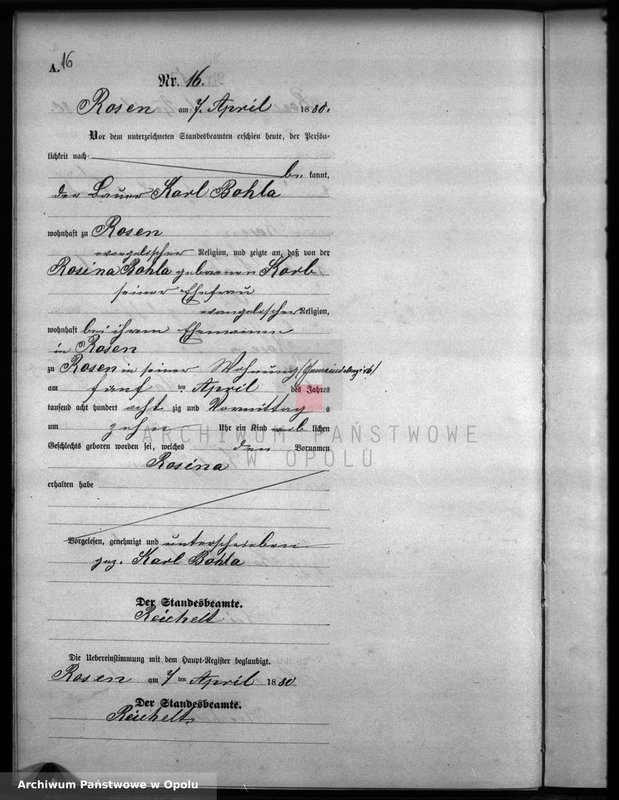 A. 16
Nr. 16.
Rosen am 7. April 1880.
Vor dem unterzeichneten Standesbeamten erschien heute, der Persön-
lichkeit nach
be kannt,
der Bauer Karl Bohla
wohnhaft zu Rosen
evangelischer Religion, und zeigte an, daß von der
Rosina Bohla geborenen Korb
seiner Ehefrau
evangelischer Religion,
wohnhaft bei ihrem Ehemanne
in Rosen
zu Rosen in seiner Wohnung (Gemeindebezirk)
am fünf ten April des Jahres
tausend acht hundert acht zig und Vormittag s
um zehn Uhr ein Kind weib lichen
Geschlechts geboren worden sei, welches den Vornamen
Rosina
erhalten habe
Vorgelesen, genehmigt und unterschrieben
gez. Karl Bohla
Der Standesbeamte.
Reichelt
Die Uebereinstimmung mit dem Haupt-Register beglaubigt.
Rosen am 7 ten April 1880
Der Standesbeamte.
Reichelt
ARCHIWUM PAŃSTWOWE
W OPOLU
Archiwum Państwowe w Opolu